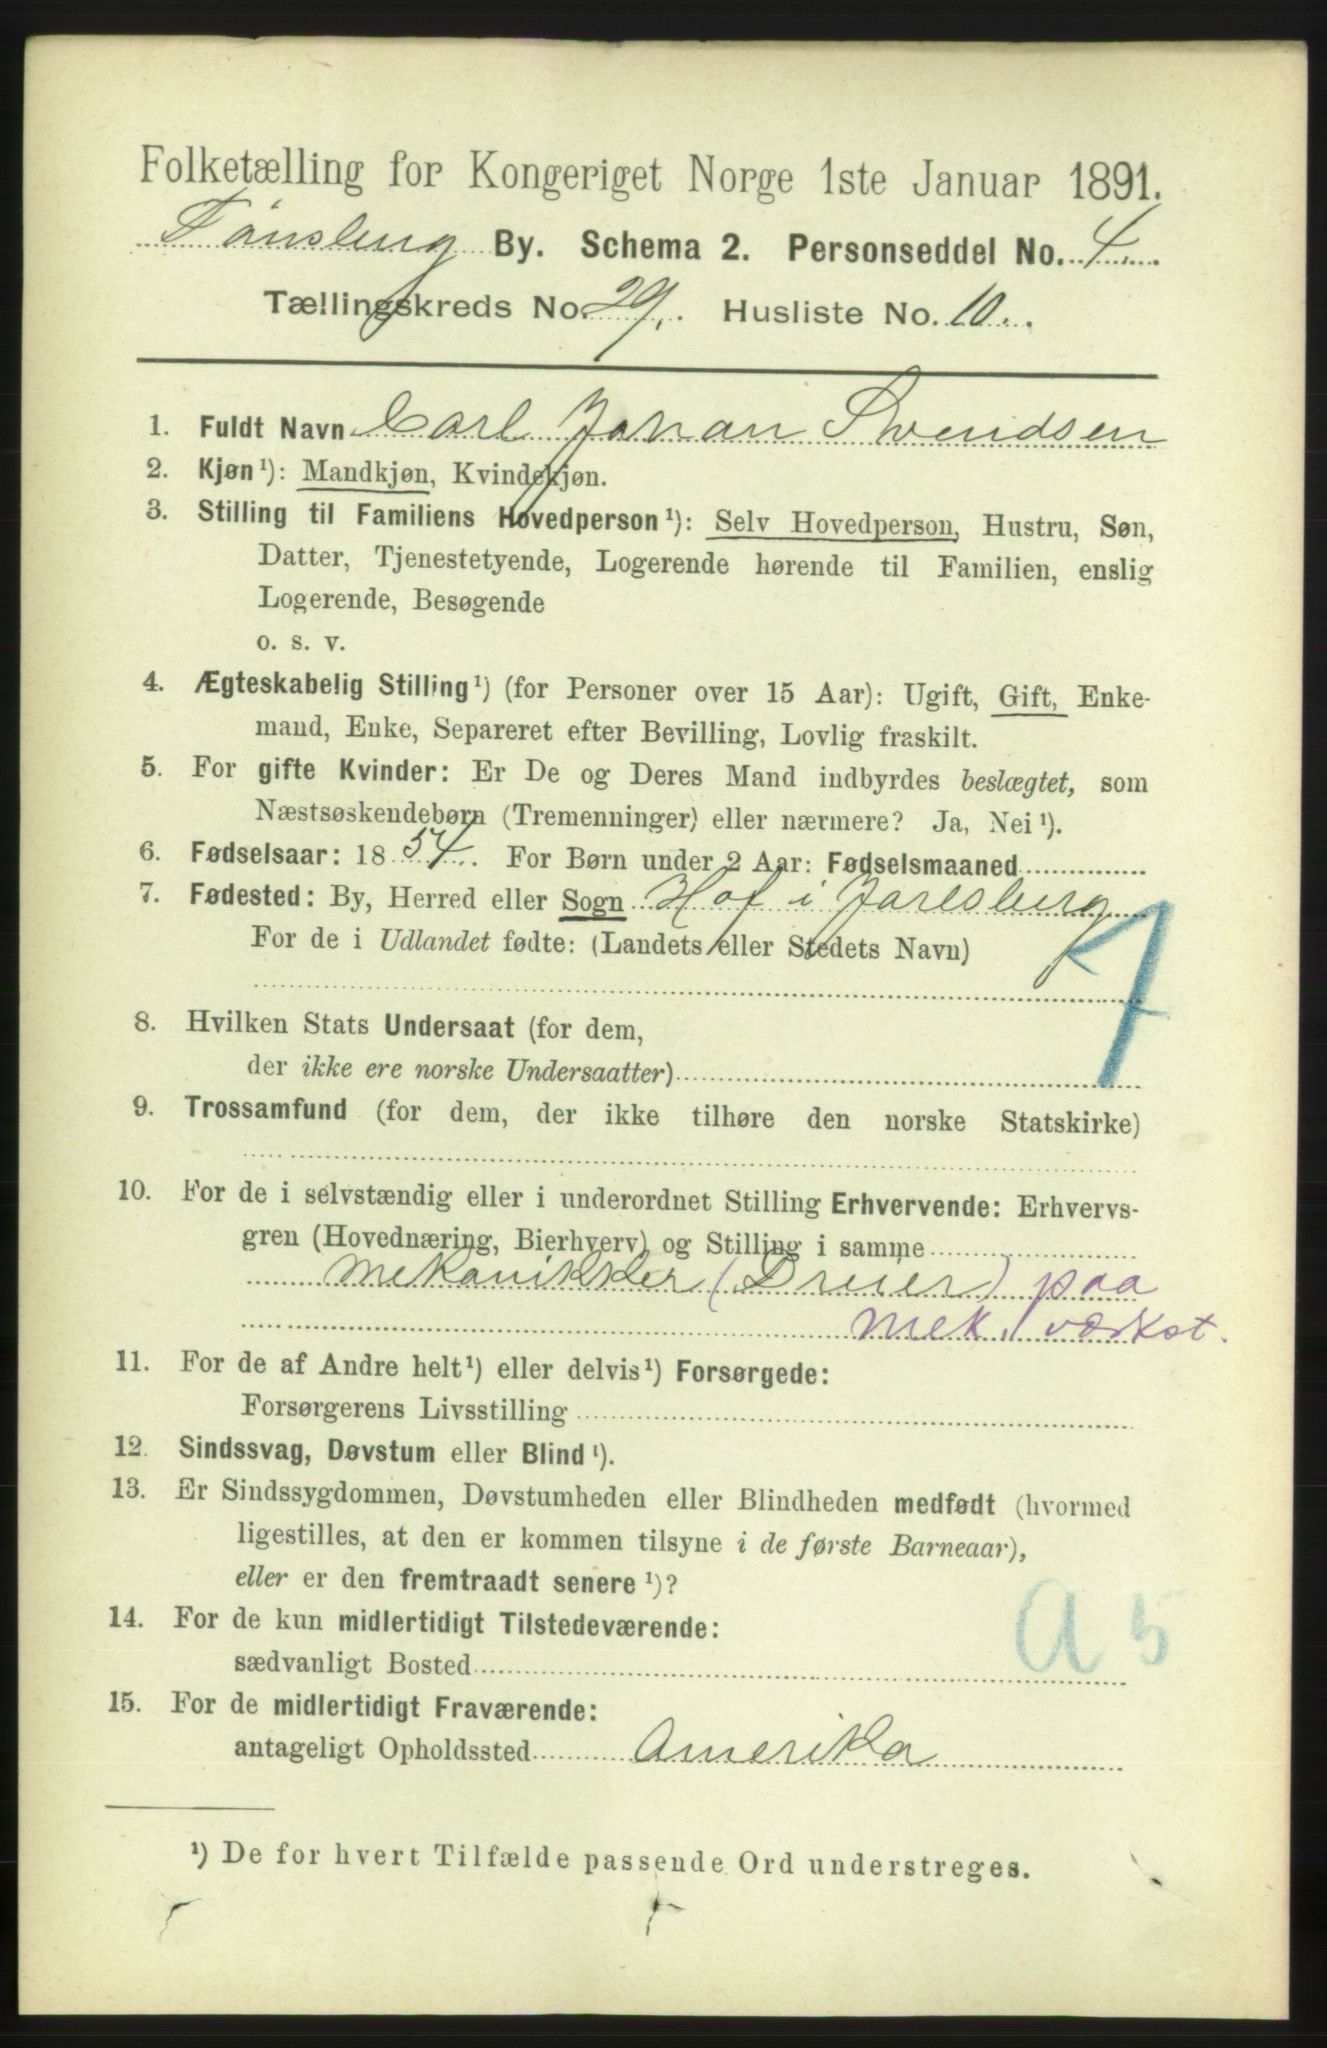 Folketælling for Kongeriget Norge 1ste Januar 1891.
Tønsberg By. Schema 2. Personseddel No. 4
Tællingskreds No. 29. Husliste No. 10.
1. Fuldt Navn Carl Johan Svendsen
2. Kjøn¹): Mandkjøn, Kvindekjøn.
3. Stilling til Familiens Hovedperson¹): Selv Hovedperson, Hustru, Søn,
Datter, Tjenestetyende, Logerende hørende til Familien, enslig
Logerende, Besøgende
o. s. v.
4. Ægteskabelig Stilling¹) (for Personer over 15 Aar): Ugift, Gift, Enke-
mand, Enke, Separeret efter Bevilling, Lovlig fraskilt.
5. For gifte Kvinder: Er De og Deres Mand indbyrdes beslægtet, som
Næstsøskendebørn (Tremenninger) eller nærmere? Ja, Nei¹).
6. Fødselsaar: 1854. For Børn under 2 Aar: Fødselsmaaned
7. Fødested: By, Herred eller Sogn Hof i Jarlsberg
For de i Udlandet fødte: (Landets eller Stedets Navn)
8. Hvilken Stats Undersaat (for dem,
der ikke ere norske Undersaatter)
9. Trossamfund (for dem, der ikke tilhøre den norske Statskirke)
10. For de i selvstændig eller i underordnet Stilling Erhvervende: Erhvervs-
gren (Hovednæring, Bierhverv) og Stilling i samme
Mekanikker (Dreier) paa
Mek. værkst.
11. For de af Andre helt¹) eller delvis¹) Forsørgede:
Forsørgerens Livsstilling
12. Sindssvag, Døvstum eller Blind¹).
13. Er Sindssygdommen, Døvstumheden eller Blindheden medfødt (hvormed
ligestilles, at den er kommen tilsyne i de første Barneaar),
eller er den fremtraadt senere¹)?
14. For de kun midlertidigt Tilstedeværende:
sædvanligt Bosted
A 5
15. For de midlertidigt Fraværende:
antageligt Opholdssted Amerika
¹) De for hvert Tilfælde passende Ord understreges.